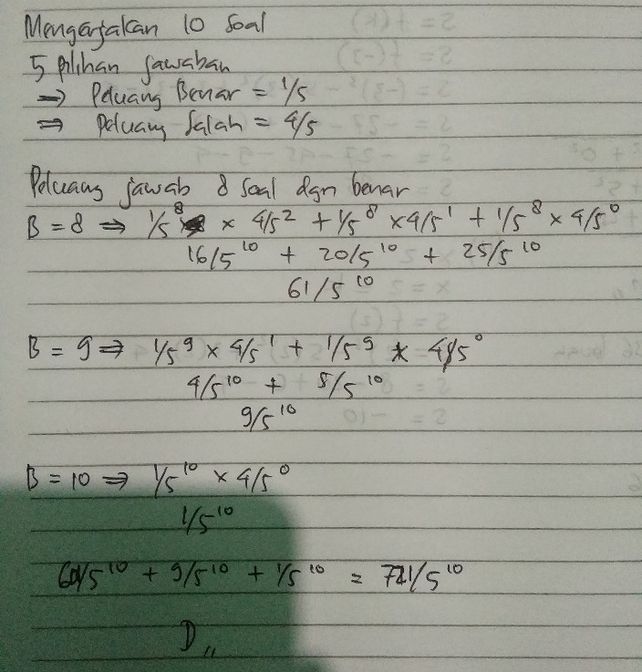 Mengerjakan 10 Soal
5 pilihan jawaban
⇒ Peluang Benar = 1/5
⇒ Peluang Salah = 4/5
Peluang jawab 8 Soal dgn benar
B = 8 ⇒ 1/5⁸ × 4/5² + 1/5⁸ × 4/5¹ + 1/5⁸ × 4/5⁰
16/5¹⁰ + 20/5¹⁰ + 25/5¹⁰
61/5¹⁰
B = 9 ⇒ 1/5⁹ × 4/5¹ + 1/5⁹ × 4/5⁰
4/5¹⁰ + 5/5¹⁰
9/5¹⁰
B = 10 ⇒ 1/5¹⁰ × 4/5⁰
1/5¹⁰
61/5¹⁰ + 9/5¹⁰ + 1/5¹⁰ = 71/5¹⁰
D,,